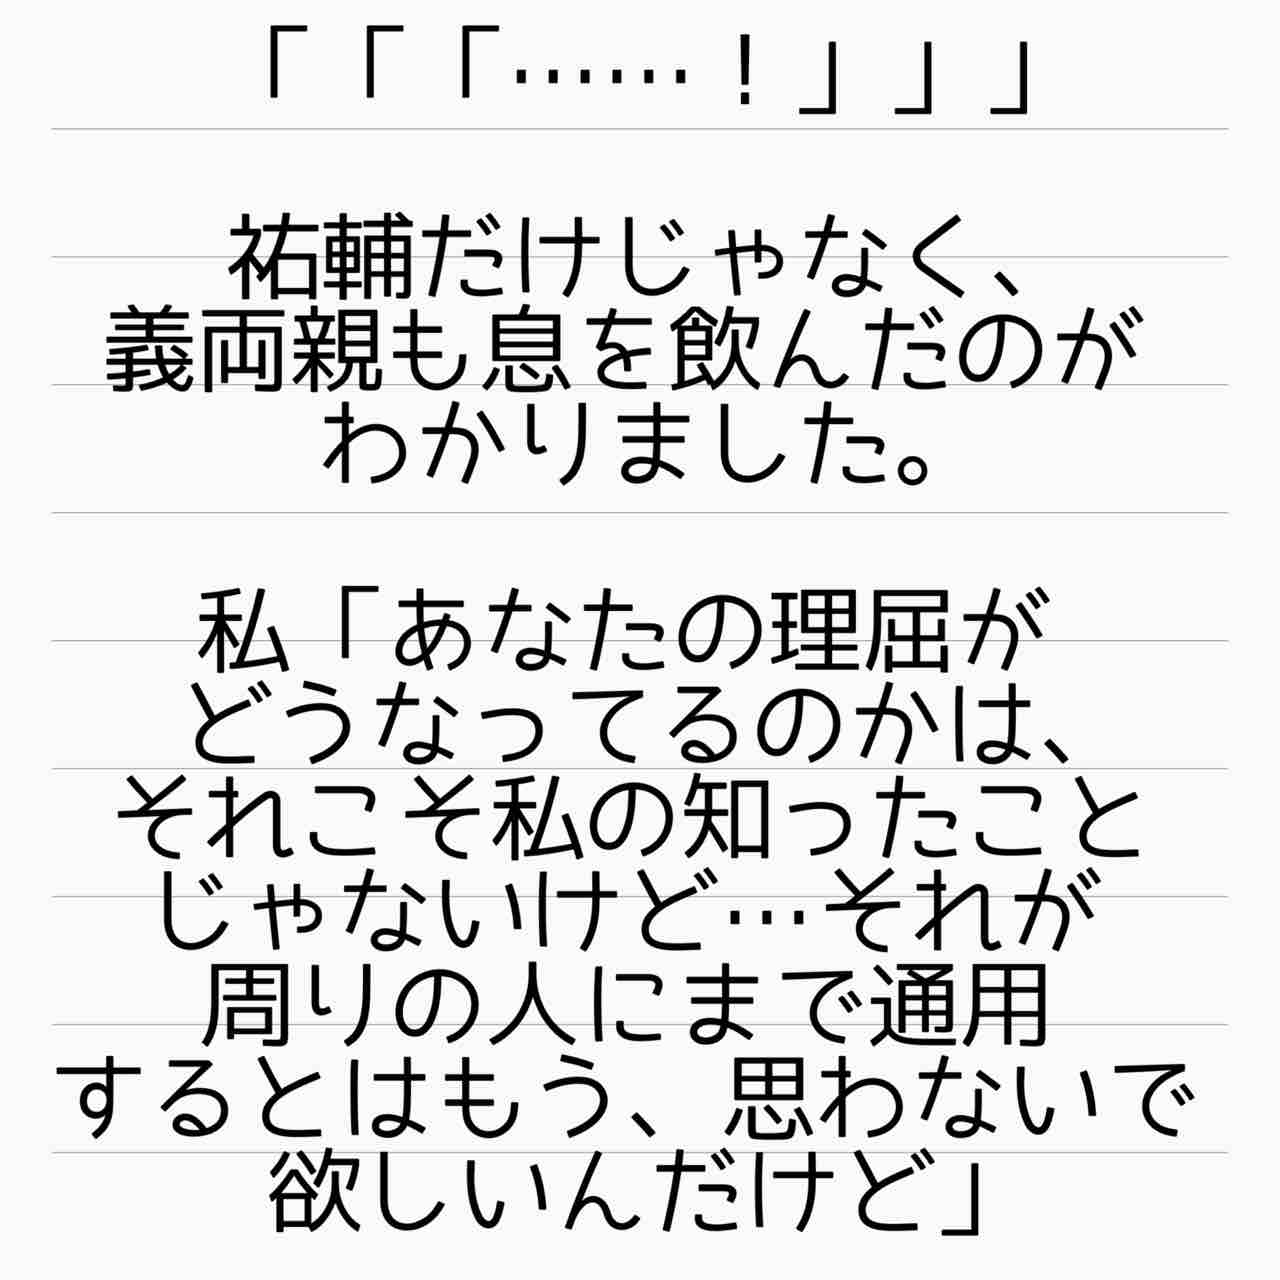 「「「……！」」」
祐輔だけじゃなく、
義両親も息を飲んだのが
わかりました。
私「あなたの理屈が
どうなってるのかは、
それこそ私の知ったこと
じゃないけど…それが
周りの人にまで通用
するとはもう、思わないで
欲しいんだけど」